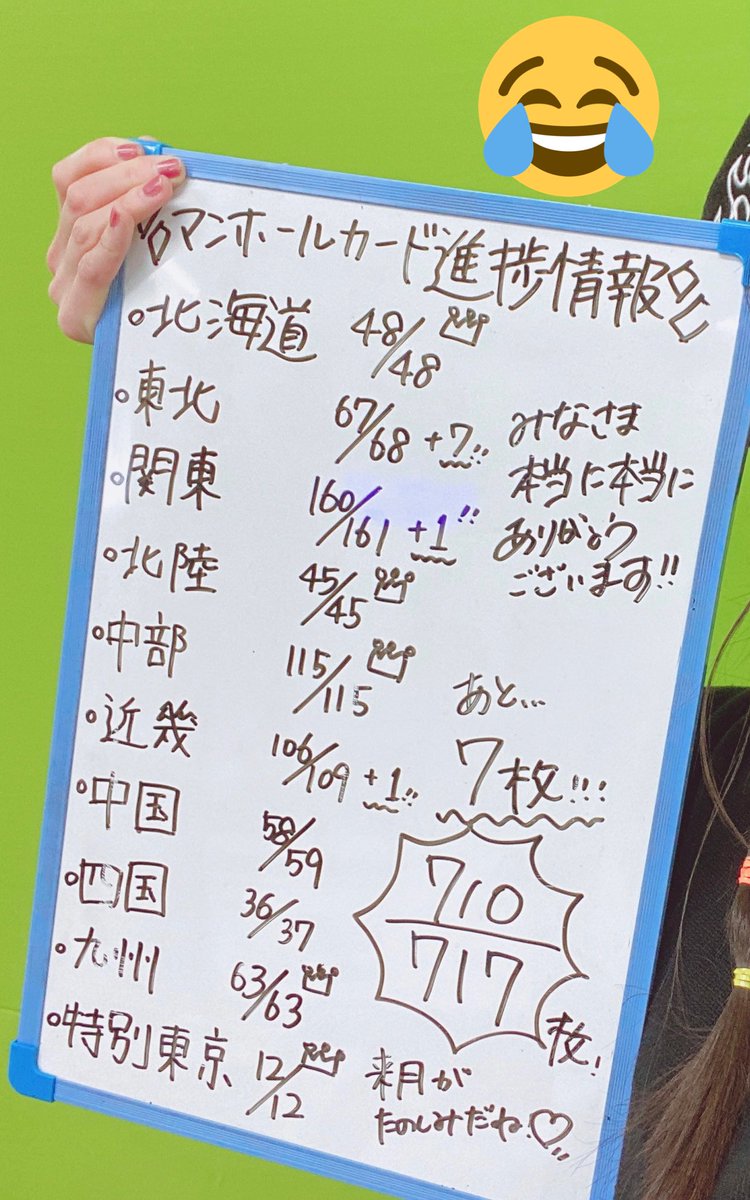 マンホールカード進捗情報
•北海道 48/48
•東北 67/68 +7!!
•関東 160/161 +1!!
•北陸 45/45
•中部 115/115
•近畿 106/109 +1!!
•中国 58/59
•四国 36/37
•九州 63/63
•特別東京 12/12
みなさま
本当に本当に
ありがとう
ございます!!
あと...
7枚!!!
710/717枚!
来月が
たのしみだね♡!!